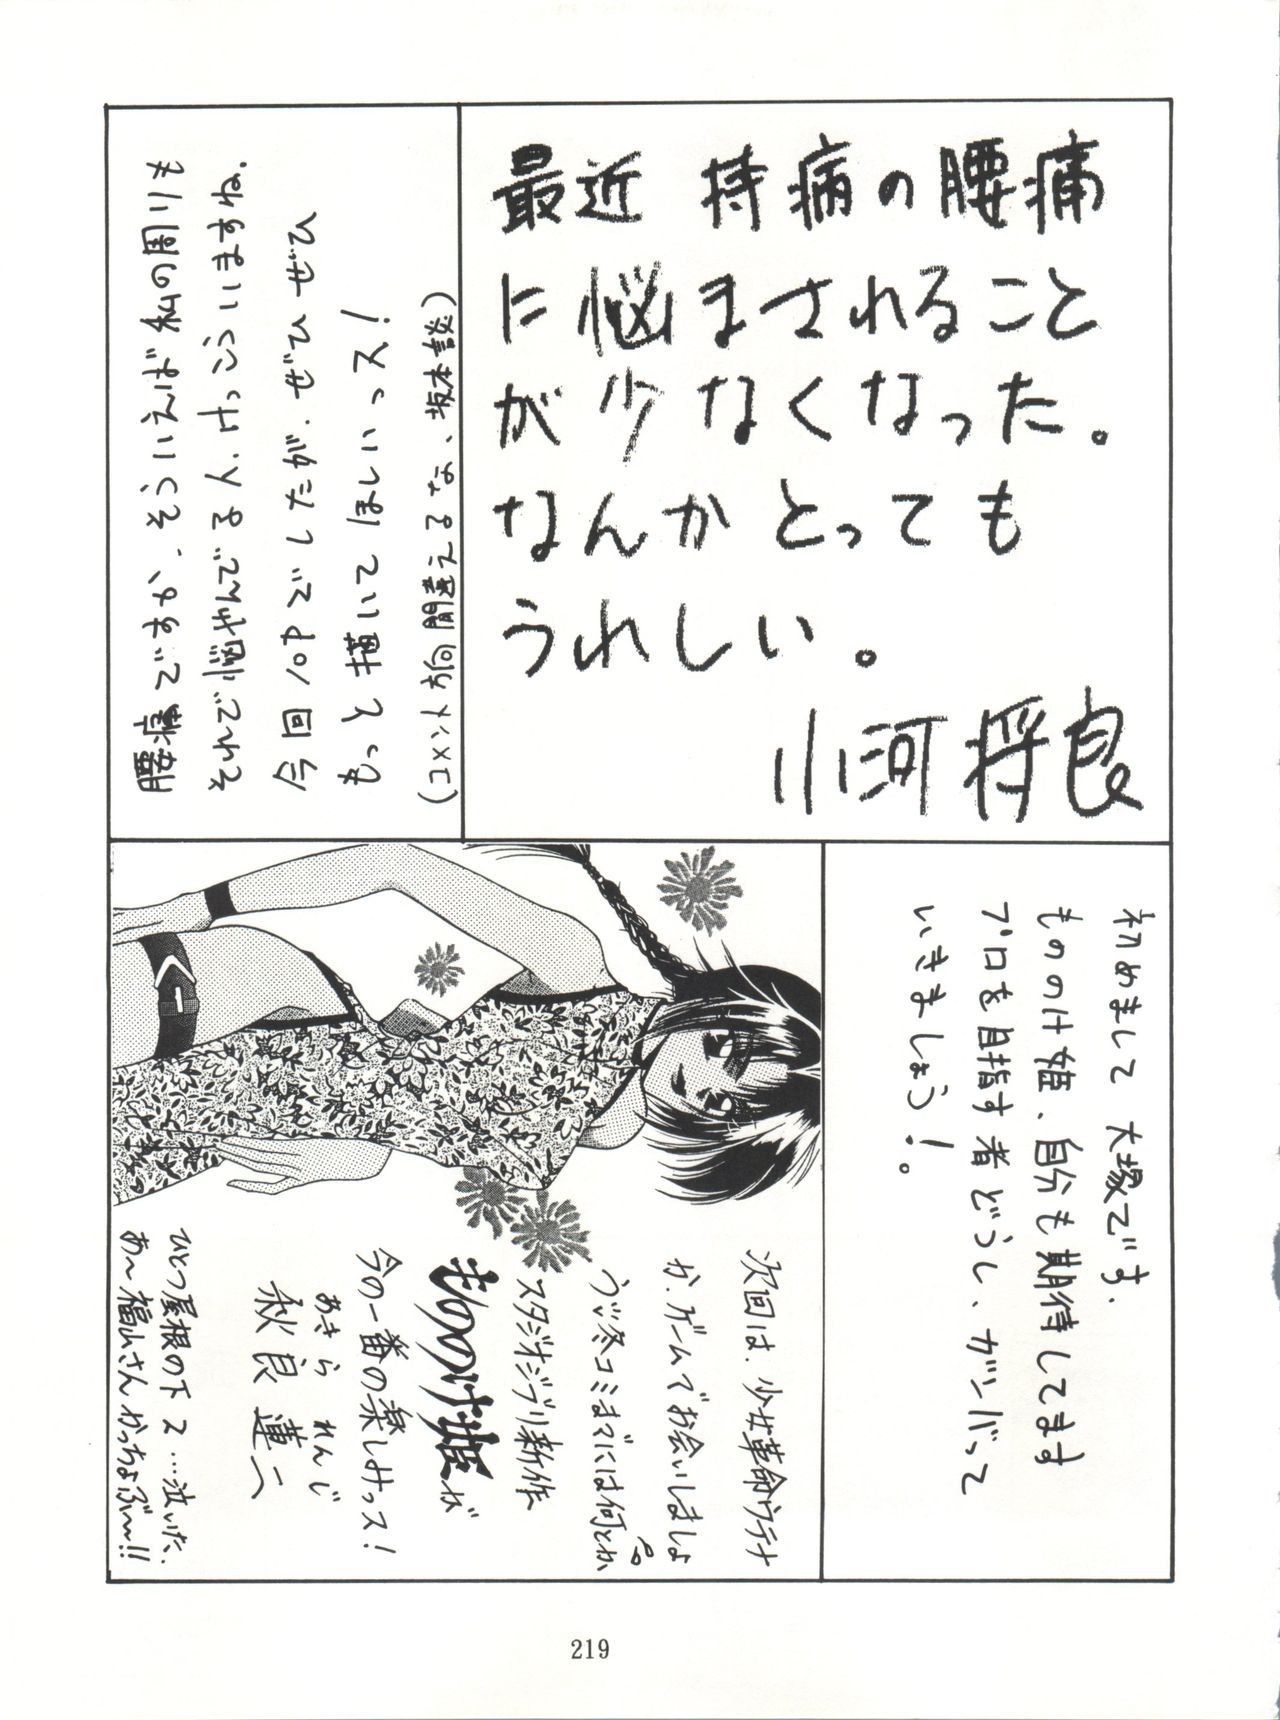 最近 持病の腰痛
に悩まされること
が少なくなった。
なんかとっても
うれしい。
小河将良
腰痛ですか、そういえば私の周りも
それで悩やんでる人、けっこういますね.
今回10Pでしたが、ぜひぜひ
もっと描いてほしいっス!
(コメント方向間違えるな、坂本談)
初めまして 大塚です.
もののけ姫、自分も期待してます
プロを目指す者どうし、ガンバって
いきましょう!。
次回は、少女革命ウテナ
か、ゲームでお会いしましょ
う''冬コミまでには何とか
スタジオジブリ新作
もののけ姫が
今の一番の楽しみっス!
あきら れんじ
秋良 蓮二
ひとつ屋根の下2…泣いた.
あ〜福山さんかっちょぶ〜!!
219